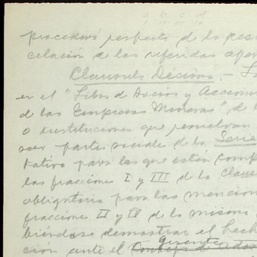 procederá respecto de la pose
celación de las referidas apor
Clausula Decima.- La
en el "Libro de Socios y Accion
de las Empresas Mineras" de
o instituciones que resuelvan
ser partes sociales de la Serie
tativo para los que estén comp
las fracciones I y III de la Clau
obligatorio para las mencion
fracciones II y IV de la misma
biéndose demostrar el hech
ción ante el Gerente